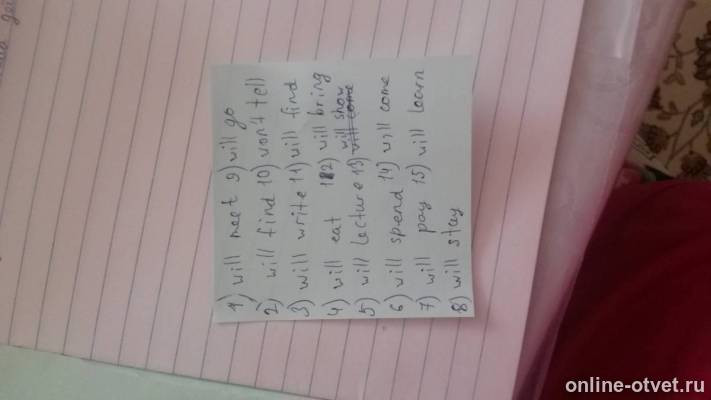 1) will meet 9) will go
2) will find 10) von't tell
3) will write 11) will find
4) will eat 12) will bring
5) will lecture 13) will show
will come
6) will spend 14) will come
7) will pay 15) will learn
8) will stay
online-otvet.ru